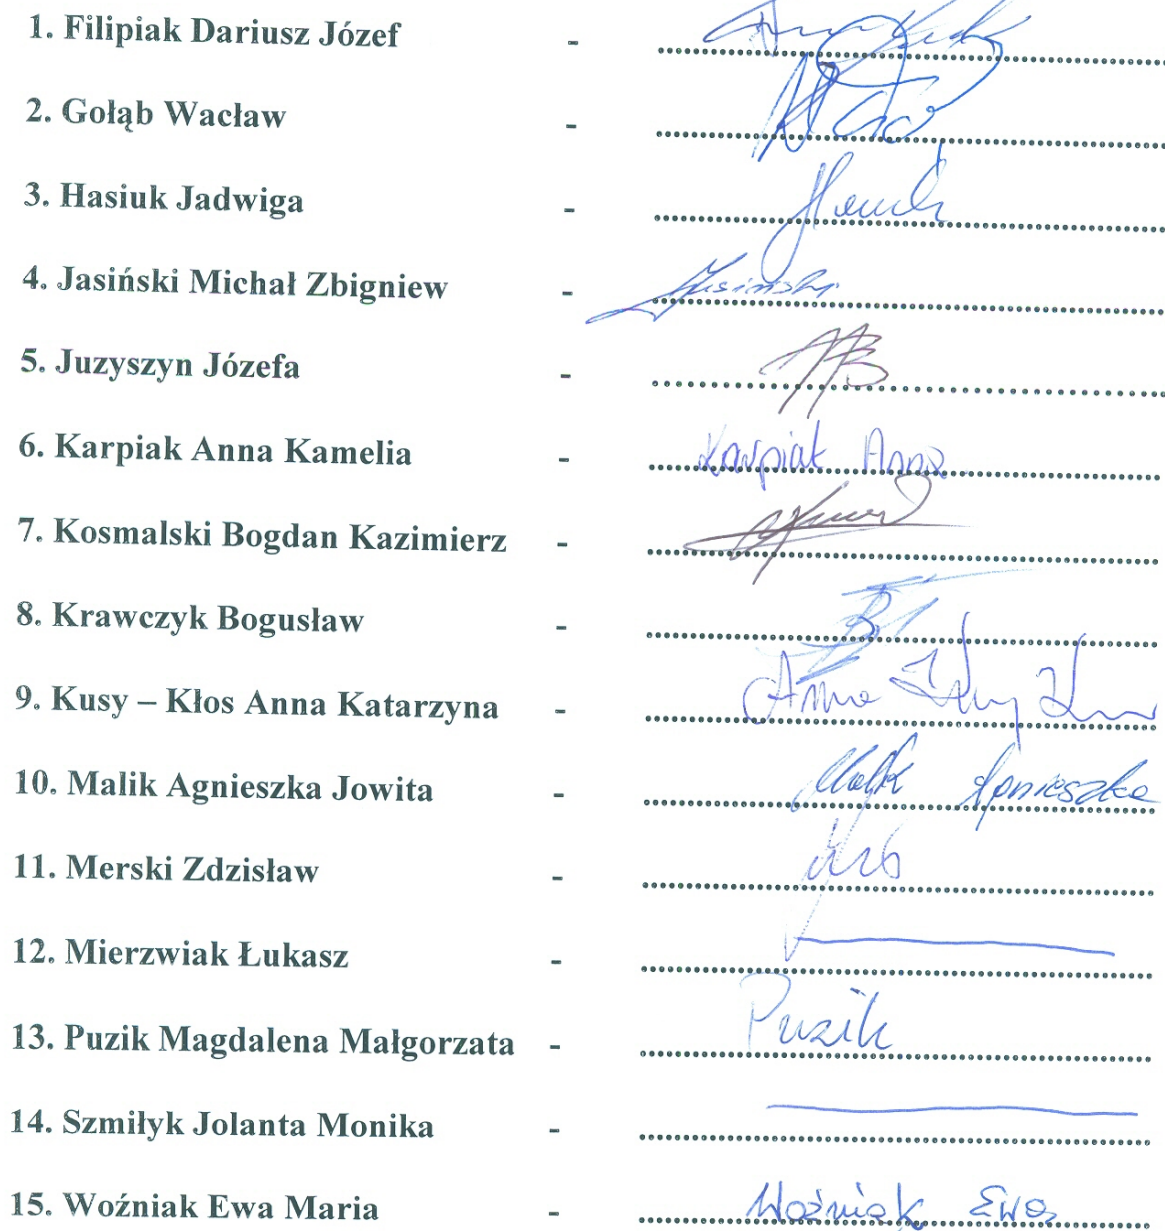 1. Filipiak Dariusz Józef -
2. Gołąb Wacław -
3. Hasiuk Jadwiga -
4. Jasiński Michał Zbigniew - Jasiński
5. Juzyszyn Józefa -
6. Karpiak Anna Kamelia - Karpiak Anna
7. Kosmalski Bogdan Kazimierz -
8. Krawczyk Bogusław -
9. Kusy – Kłos Anna Katarzyna - Anna
10. Malik Agnieszka Jowita - Malik Agnieszka
11. Merski Zdzisław -
12. Mierzwiak Łukasz -
13. Puzik Magdalena Małgorzata - Puzik
14. Szmiłyk Jolanta Monika -
15. Woźniak Ewa Maria - Woźniak Ewa